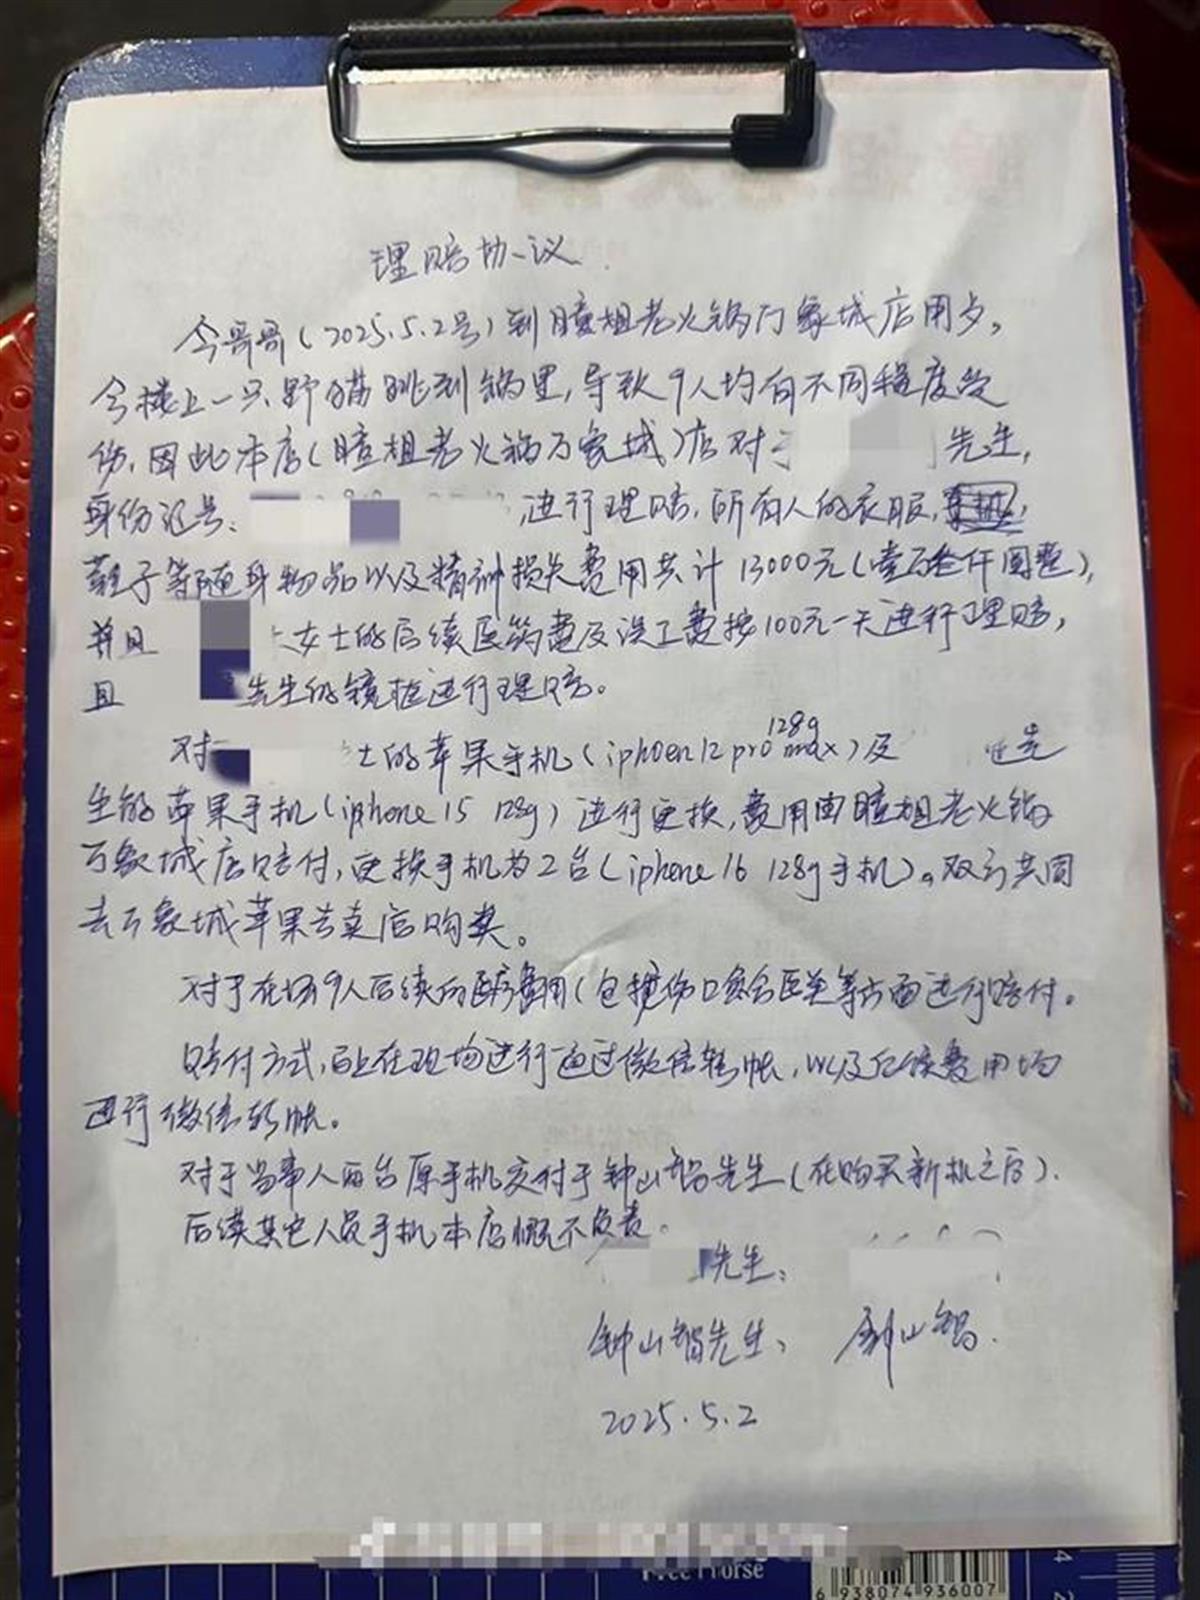 理赔协议
今哥哥(2025.5.2号)到瞳姐老火锅万象城店用歺,
今楼上一只野猫跳到锅里,导致9人均有不同程度受
伤,因此本店(瞳姐老火锅万象城)店对于 先生,
身份证号: ,进行理赔,所有人的衣服,
鞋子等随身物品以及精神损失费用共计13000元(壹万叁仟圆整),
并且 女士的后续医药费及误工费按100元一天进行理赔,
且 先生的镜框进行理赔。
128g
对 士的苹果手机(iphoen12 pro max)及 先
生的苹果手机(iphone 15 128g)进行更换,费用由瞳姐老火锅
万象城店赔付,更换手机为2台(iphone 16 128g手机)。双方共同
去万象城苹果专卖店购买。
对于在场9人后续的医疗费用(包括伤口愈合医美等方面进行赔付。
赔付方式,马上在现场进行通过微信转帐,以及后续费用均
进行微信转帐。
对于当事人两台原手机交付于钟山智先生(在购买新机之后).
后续其它人员手机本店慨不负责。
先生:
钟山智先生: 钟山智.
2025.5.2
Free Horse
6 938074 936007